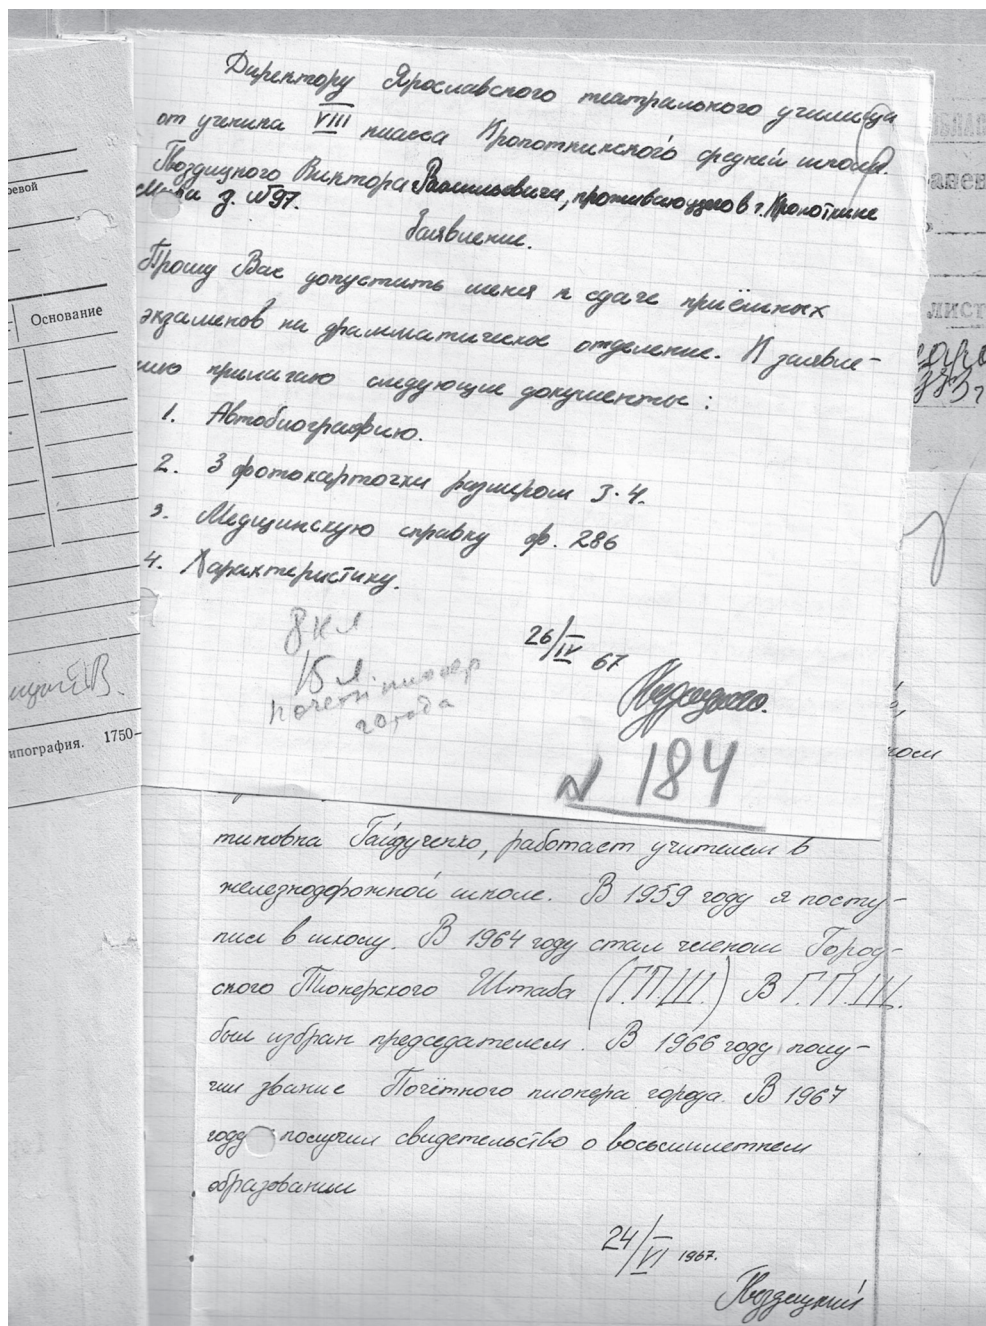 Директору Ярославского театрального училища
от ученика VIII класса Кропоткинского средней школы.
Гвоздицкого Виктора Васильевича, проживающего в г. Кропоткине
д. №97.
Заявление.
Прошу Вас допустить меня к сдаче приёмных
экзаменов на драмматическое отделение. К заявле-
нию прилагаю следующие документы:
1. Автобиографию.
2. 3 фотокарточки размером 3·4.
3. Медицинскую справку ф. 286
4. Характеристику.
8 кл
15 л.
почетн. пионер
города
26/IV 67
№ 184
Основание
ипография. 1750-
лист
тиновна Гайдученко, работает учителем в
железнодорожной школе. В 1959 году я посту-
пил в школу. В 1964 году стал членом Город-
ского Пионерского Штаба (Г.П.Ш.) В Г.П.Ш.
был избран председателем. В 1966 году полу-
чил звание Почётного пионера города. В 1967
году получил свидетельство о восьмилетнем
образовании
24/VI 1967.
Гвоздицкий